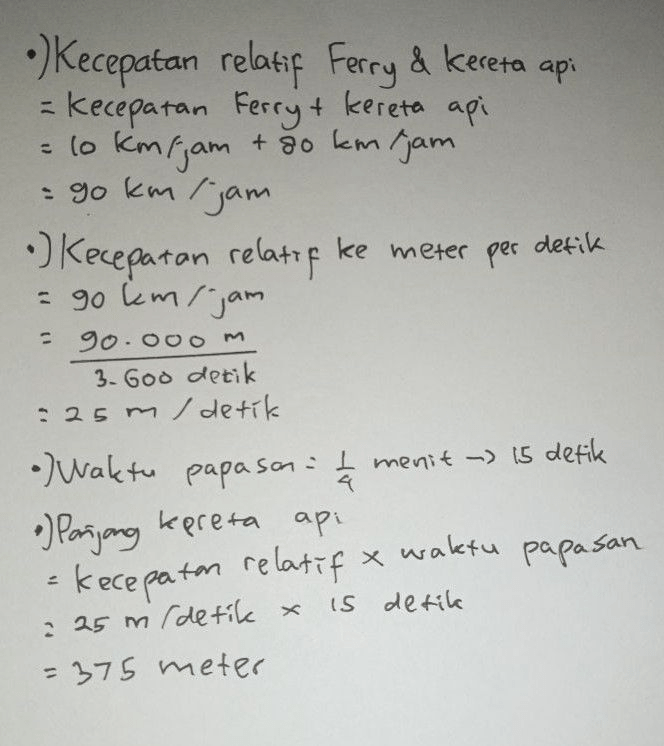 •) Kecepatan relatif Ferry & kereta api
= kecepatan Ferry + kereta api
= 10 km/jam + 80 km/jam
= 90 km/jam
•) Kecepatan relatif ke meter per detik
= 90 km/jam
= 90.000 m
3.600 detik
= 25 m/detik
•) Waktu papasan = 1/4 menit -> 15 detik
•) Panjang kereta api
= kecepatan relatif x waktu papasan
= 25 m/detik x 15 detik
= 375 meter